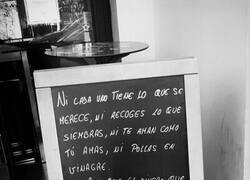 NI CADA UNO TIENE LO QUE SE
MERECE, NI RECOGES LO QUE
SIEMBRAS, NI TE AMAN COMO
TÚ AMAS, NI POLLAS EN
VINAGRE.
QUE